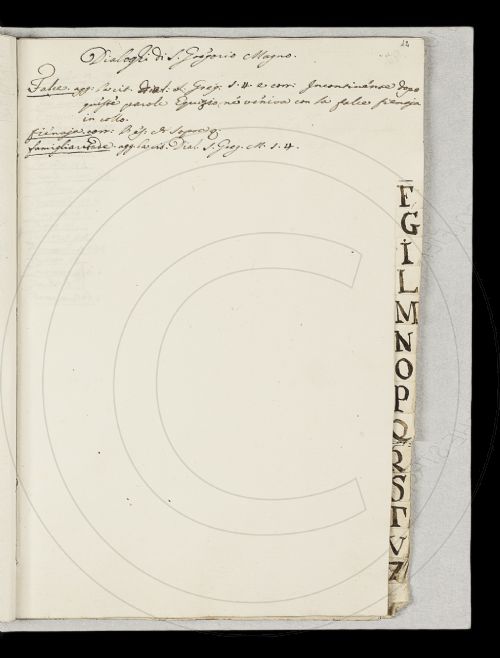 Dialoghi di S. Gregorio Magno.
Falce. agg. la cit. Dial. S. Greg. 1. 4. e corr. Incontinènte dopo
quéste parole Equizio ne veniva con la falce fienaja
in collo.
fienaja corr.
famigliaritade. agg. la cit. Dial. S. Greg. M. 1. 4.
F
G
I
L
M
N
O
P
Q
R
S
T
V
Z